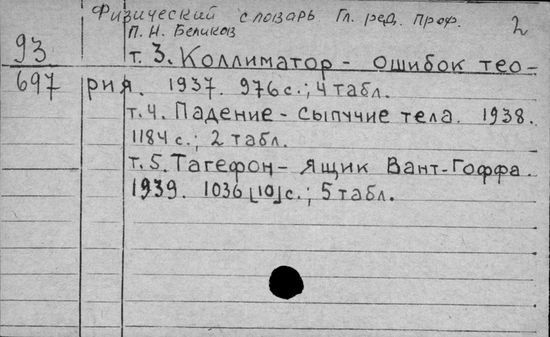 Физический словарь Гл. ред. Проф. 2
П. Н. Беликов
93 т. 3. Коллиматор - ошибок тео-
697 рия. 1937. 976 с.; 4 табл.
т. 4. Падение - сыпучие тела. 1938.
1184 с.; 2 табл.
т. 5. Тагефон - ящик Вант-Гоффа.
1939. 1036 [10] с.; 5 табл.